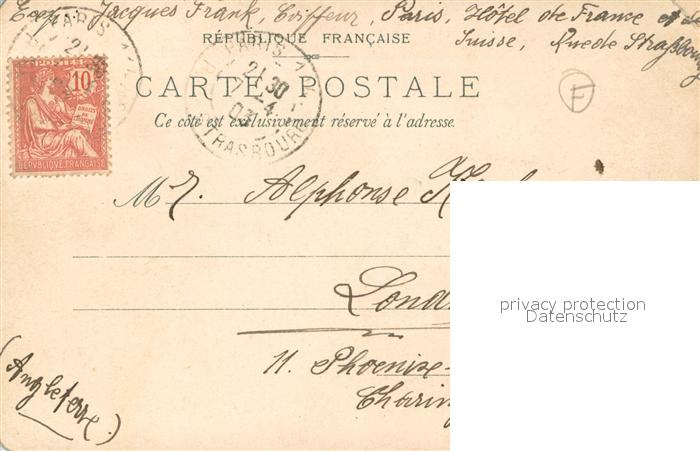 Exp: Jacques Frank, Coiffeur, Paris, Hôtel de France et de
Suisse, Rue de Straßbourg
RÉPUBLIQUE FRANÇAISE
CARTE POSTALE
Ce côté est exclusivement réservé à l'adresse.
10
RÉPUBLIQUE FRANÇAISE
PARIS
21 30
PARIS
21 30
24
03
STRASBOURG
F
Mr. Alphonse
Lond
11. Phoenix-
Charin
(Angleterre)
privacy protection
Datenschutz